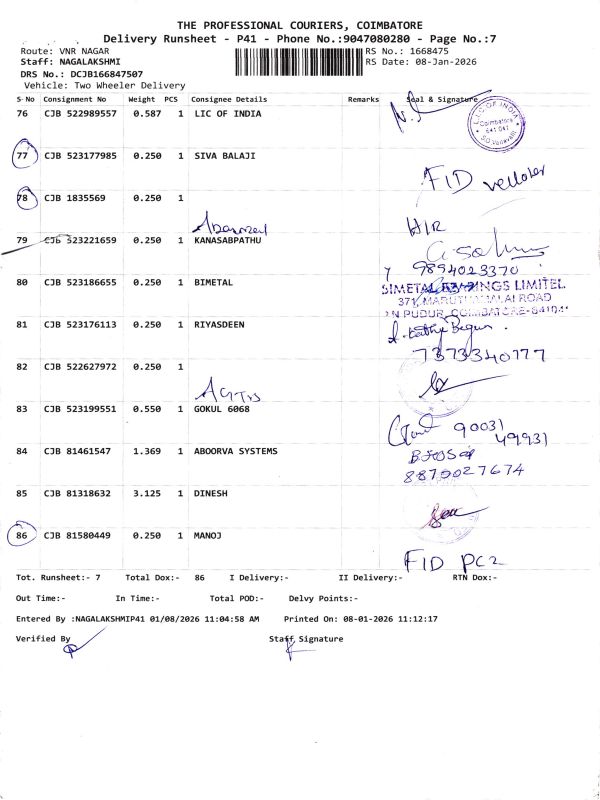 THE PROFESSIONAL COURIERS, COIMBATORE
Delivery Runsheet - P41 - Phone No.:9047080280 - Page No.:7
Route: VNR NAGAR RS No.: 1668475
Staff: NAGALAKSHMI RS Date: 08-Jan-2026
DRS No.: DCJB166847507
Vehicle: Two Wheeler Delivery
S-No Consignment No Weight PCS Consignee Details Remarks Seal & Signature
76 CJB 522989557 0.587 1 LIC OF INDIA
L.I.C OF INDIA
Coimbatore
641 041
77 CJB 523177985 0.250 1 SIVA BALAJI
FID
78 CJB 1835569 0.250 1
H/R
79 CJB 523221659 0.250 1 KANASABPATHU
9894023370
80 CJB 523186655 0.250 1 BIMETAL
371, MARUTHAMALAI ROAD
PUDUR, COIMBATORE-641041
81 CJB 523176113 0.250 1 RIYASDEEN
7373340777
82 CJB 522627972 0.250 1
83 CJB 523199551 0.550 1 GOKUL 6068
90031
49931
84 CJB 81461547 1.369 1 ABOORVA SYSTEMS
8870027674
85 CJB 81318632 3.125 1 DINESH
86 CJB 81580449 0.250 1 MANOJ
FID PC2
Tot. Runsheet:- 7 Total Dox:- 86 I Delivery:- II Delivery:- RTN Dox:-
Out Time:- In Time:- Total POD:- Delvy Points:-
Entered By :NAGALAKSHMIP41 01/08/2026 11:04:58 AM Printed On: 08-01-2026 11:12:17
Verified By Staff Signature